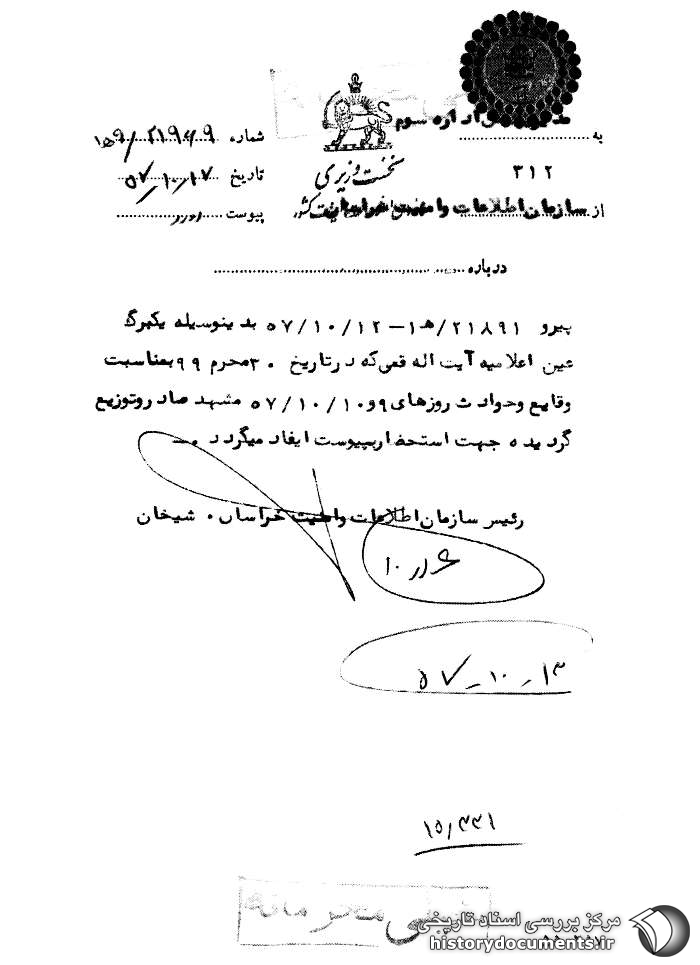 به
اداره سوم
۳۱۲
از سازمان اطلاعات و امنیت خراسان
نخست وزیری
شماره ۲۱۹۶۹/ ۹ه۱
تاریخ ۱۷-۱۰-۵۷
پیوست دارد
درباره
پیرو ۲۱۸۹۱/ه۱-۵۷/۱۰/۱۲ بدینوسیله یکبرگ
عین اعلامیه آیت اله قمی که در تاریخ ۳۰ محرم ۹۹ بمناسبت
وقایع وحوادث روزهای ۹و۵۷/۱۰/۱۰ مشهد صادر وتوزیع
گردیده جهت استحضار بپیوست ایفاد میگردد .
رئیس سازمان اطلاعات وامنیت خراسان . شیخان
۵۷-۱۰-۱۳
خیلی محرمانه
مرکز بررسی اسناد تاریخی
historydocuments.ir